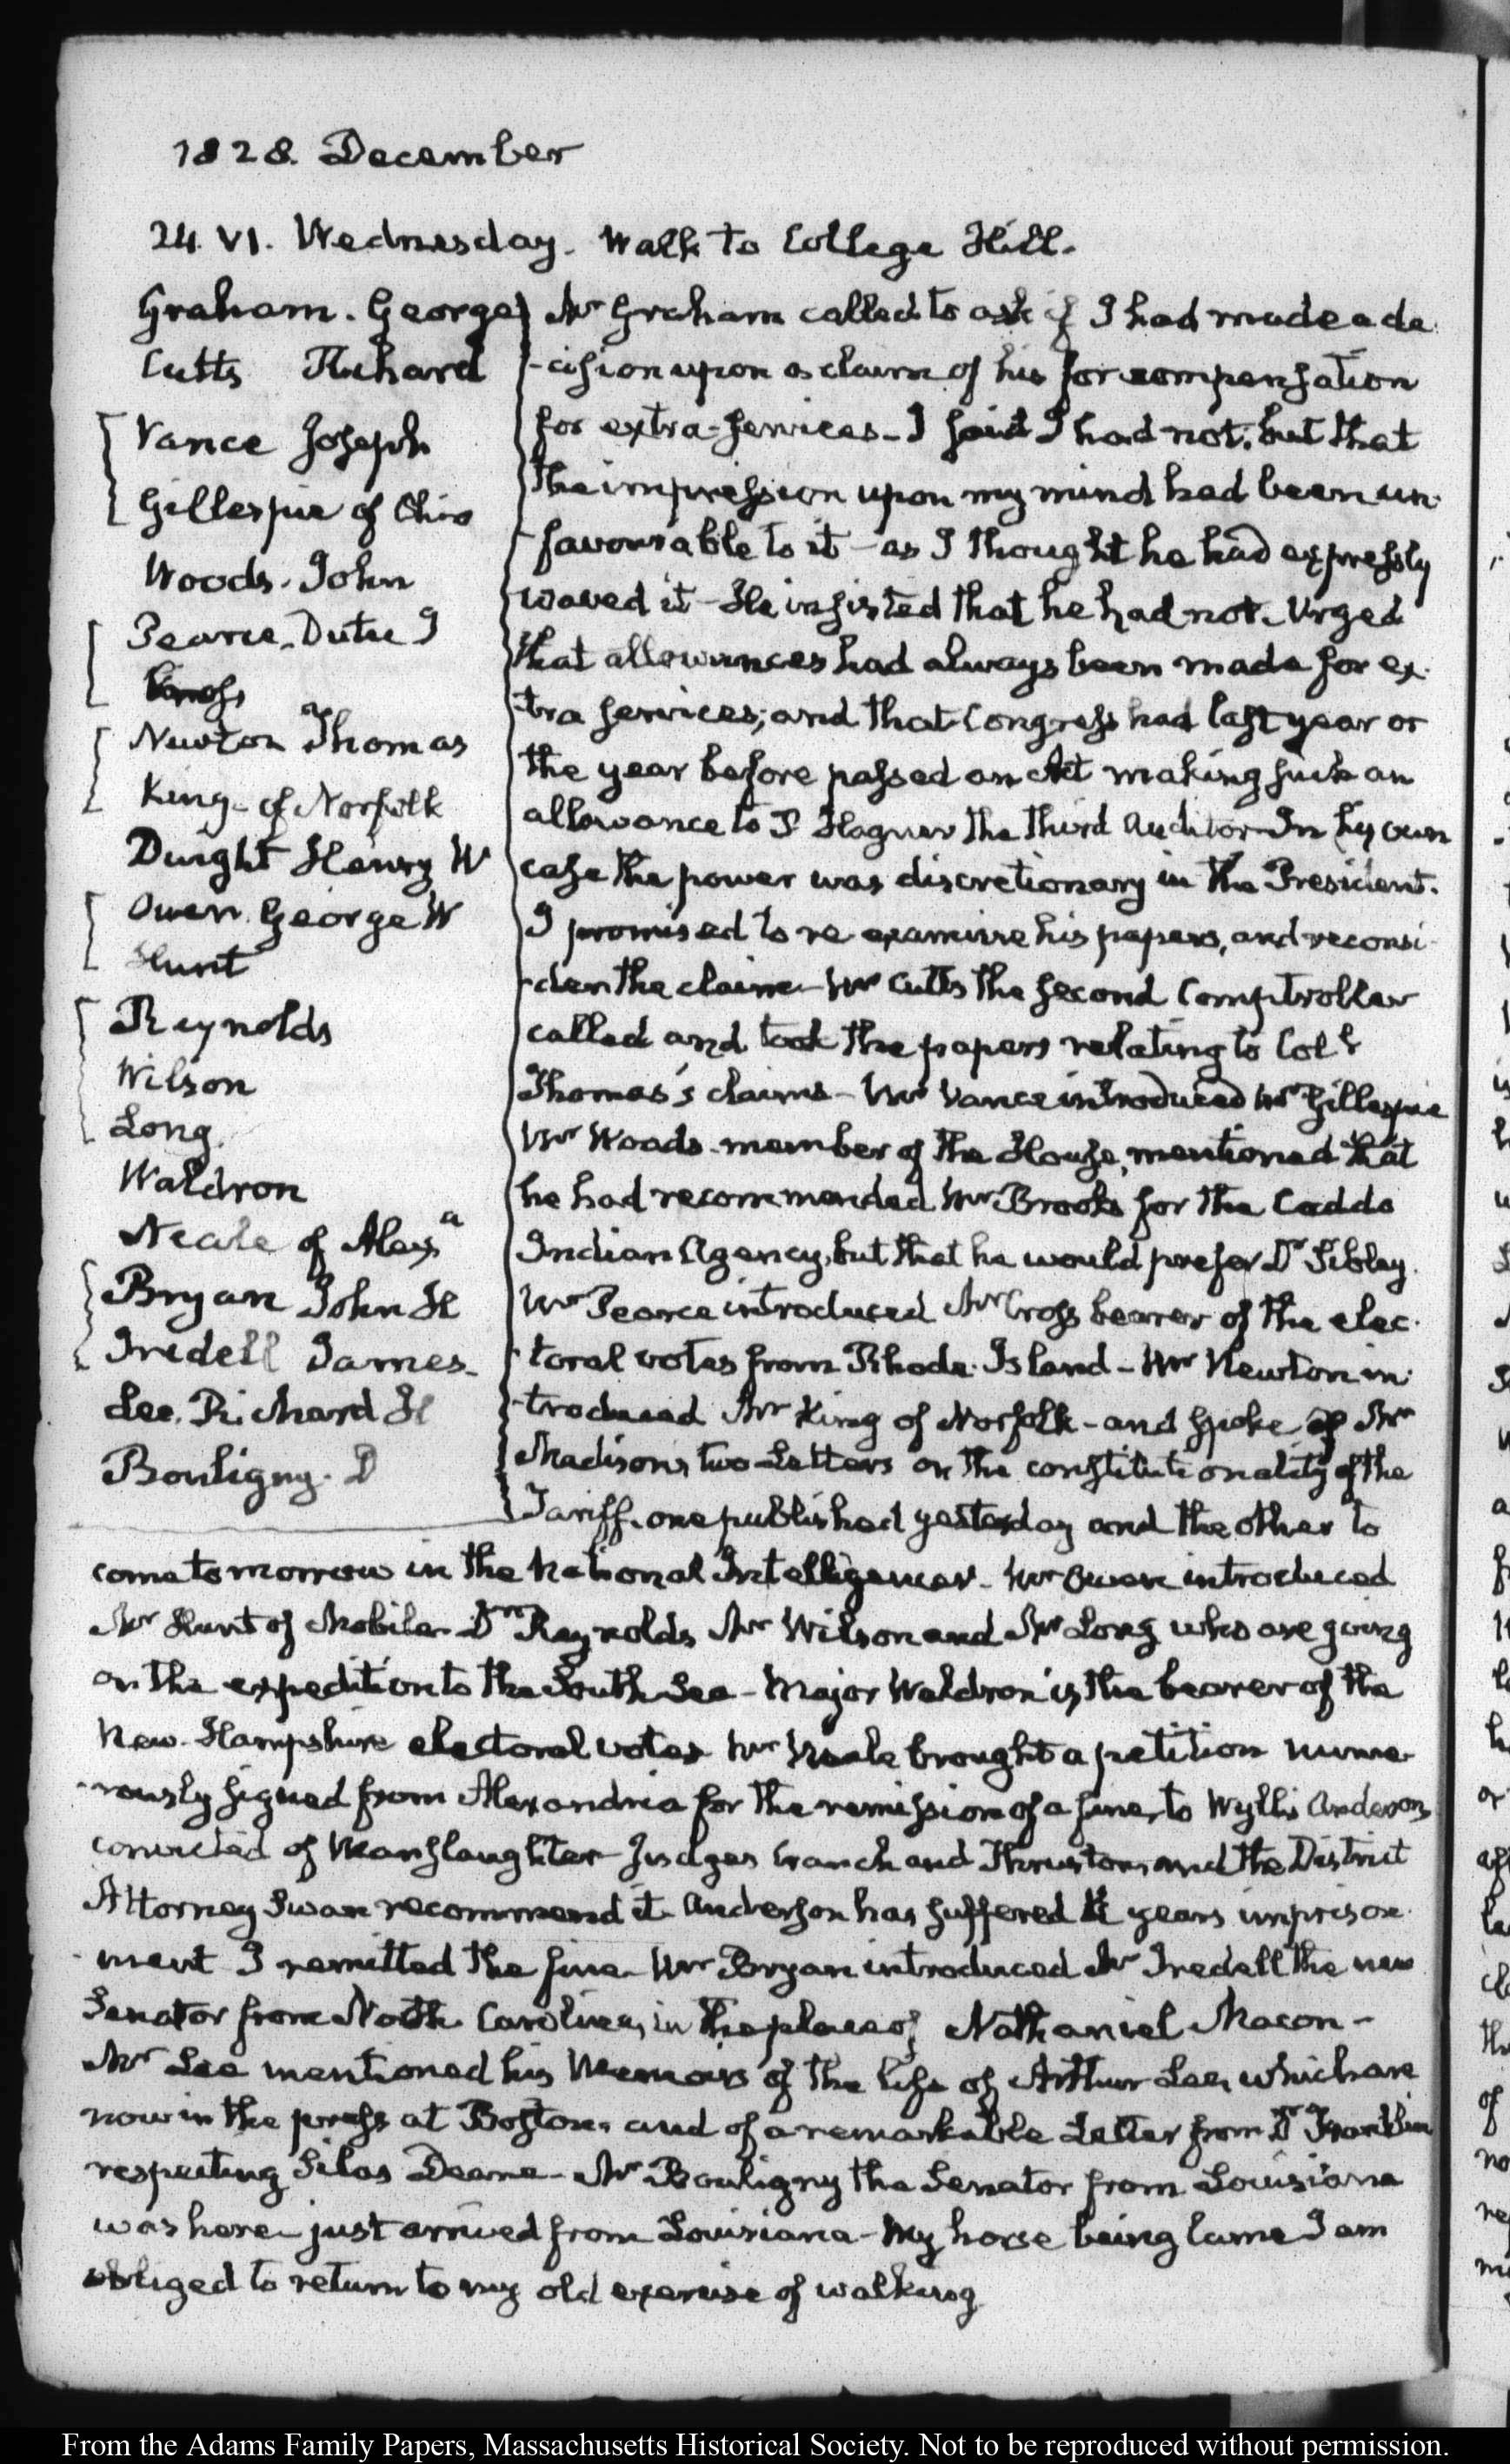 1828. December
24. VI. Wednesday. Walk to College Hill.
Graham. George
Cutts Richard
Vance Joseph
Gillespie of Ohio
Woods. John
Pearce. Dutee J
Cross
Newton Thomas
King - of Norfolk
Dwight Henry W
Owen. George W
Hunt
Reynolds
Wilson
Long.
Waldron
Neale of Alexa
Bryan John H
Iredell James
Lee. Richard H
Bouligny. D
Mr Graham called to ask if I had made a de
-cision upon a claim of his for compensation
for extra-services - I said I had not, but that
the impression upon my mind had been un-
-favourable to it - as I thought he had expressly
waved it - He insisted that he had not. Urged
that allowances had always been made for ex-
-tra services; and that Congress had last year or
the year before passed an Act making such an
allowance to P Hagner the third Auditor - In his own
case the power was discretionary in the President.
I promised to re examine his papers, and reconsi-
-der the claim - Mr Cutts the second Comptroller
called and took the papers relating to Coll
Thomas's claims - Mr Vance introduced Mr Gillespie
Mr Woods - member of the House, mentioned that
he had recommended Mr Brooks for the Caddo
Indian Agency, but that he would prefer Dr Sibley.
Mr Pearce introduced Mr Cross bearer of the elec-
-toral votes from Rhode-Island - Mr Newton in-
-troduced Mr King of Norfolk - and spoke of Mr
Madison's two Letters on the constitutionality of the
Tariff, one published yesterday and the other to
come tomorrow in the National Intelligencer - Mr Owen introduced
Mr Hunt of Mobile - Dr Reynolds Mr Wilson and Mr Long who are going
on the expedition to the South Sea - Major Waldron is the bearer of the
New-Hampshire electoral votes Mr Neale brought a petition nume-
-rously signed from Alexandria for the remission of a fine, to Wyllis Anderson,
convicted of Manslaughter - Judges Cranch and Thruston, and the District
Attorney Swan recommend it - Anderson has suffered years imprison-
-ment - I remitted the fine - Mr Bryan introduced Mr Iredell the new
Senator from North Carolina, in the place of Nathaniel Macon -
Mr Lee mentioned his Memoirs of the life of Arthur Lee, which are
now in the press at Boston, and of a remarkable Letter from Dr Franklin
respecting Silas Deane - Mr Bouligny the Senator from Louisiana
was here - just arrived from Louisiana - My horse being lame I am
obliged to return to my old exercise of walking
From the Adams Family Papers, Massachusetts Historical Society. Not to be reproduced without permission.